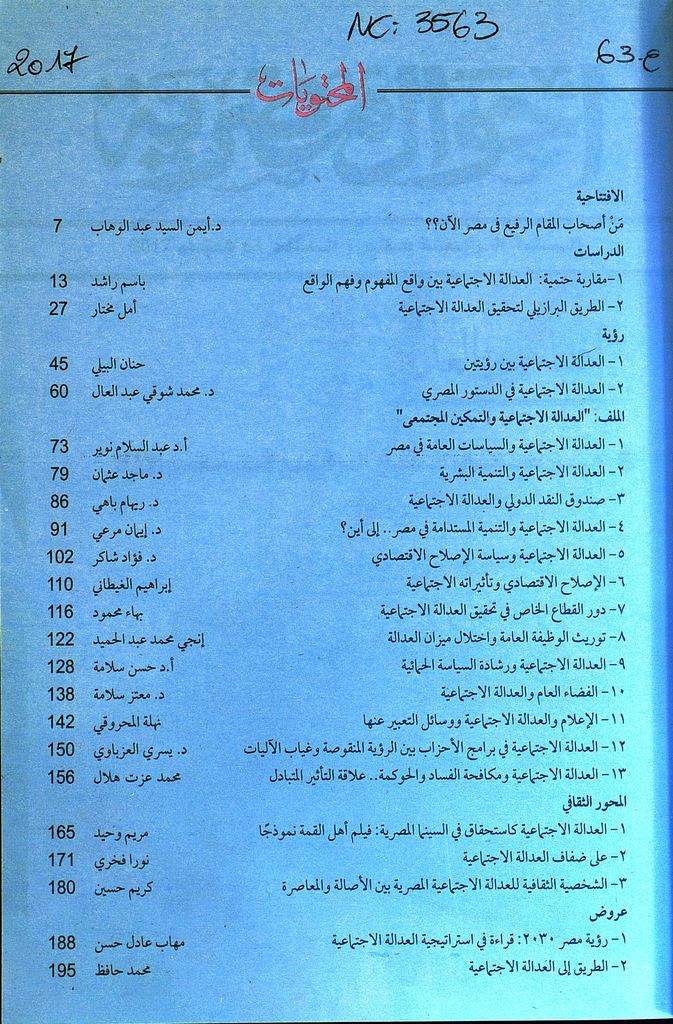 NC: 3563
2017
ع-63
المحتويات
الافتتاحية
مَنْ أصحاب المقام الرفيع فى مصر الآن؟؟ د.أيمن السيد عبد الوهاب 7
الدراسات
١- مقاربة حتمية: العدالة الاجتماعية بين واقع المفهوم وفهم الواقع باسم راشد 13
٢- الطريق البرازيلي لتحقيق العدالة الاجتماعية أمل مختار 27
رؤية
١- العدالة الاجتماعية بين رؤيتين حنان البيلي 45
٢- العدالة الاجتماعية في الدستور المصري د. محمد شوقي عبد العال 60
الملف: "العدالة الاجتماعية والتمكين المجتمعى"
١- العدالة الاجتماعية والسياسات العامة في مصر أ.د عبد السلام نوير 73
٢- العدالة الاجتماعية والتنمية البشرية د. ماجد عثمان 79
٣- صندوق النقد الدولي والعدالة الاجتماعية د. ريهام باهي 86
٤- العدالة الاجتماعية والتنمية المستدامة في مصر.. إلى أين؟ د. إيمان مرعي 91
٥- العدالة الاجتماعية وسياسة الإصلاح الاقتصادي د. فؤاد شاكر 102
٦- الإصلاح الاقتصادي وتأثيراته الاجتماعية إبراهيم الغيطاني 110
٧- دور القطاع الخاص في تحقيق العدالة الاجتماعية بهاء محمود 116
٨- توريث الوظيفة العامة واختلال ميزان العدالة إنجي محمد عبد الحميد 122
٩- العدالة الاجتماعية ورشادة السياسة الحمائية أ.د حسن سلامة 128
١٠- الفضاء العام والعدالة الاجتماعية د. معتز سلامة 138
١١- الإعلام والعدالة الاجتماعية ووسائل التعبير عنها نهلة المحروقي 142
١٢- العدالة الاجتماعية في برامج الأحزاب بين الرؤية المنقوصة وغياب الآليات د. يسري العزباوي 150
١٣- العدالة الاجتماعية ومكافحة الفساد والحوكمة.. علاقة التأثير المتبادل محمد عزت هلال 156
المحور الثقافي
١- العدالة الاجتماعية كاستحقاق في السينما المصرية: فيلم أهل القمة نموذجًا مريم وحيد 165
٢- على ضفاف العدالة الاجتماعية نورا فخري 171
٣- الشخصية الثقافية للعدالة الاجتماعية المصرية بين الأصالة والمعاصرة كريم حسين 180
عروض
١- رؤية مصر ٢٠٣٠: قراءة في استراتيجية العدالة الاجتماعية مهاب عادل حسن 188
٢- الطريق إلى العدالة الاجتماعية محمد حافظ 195